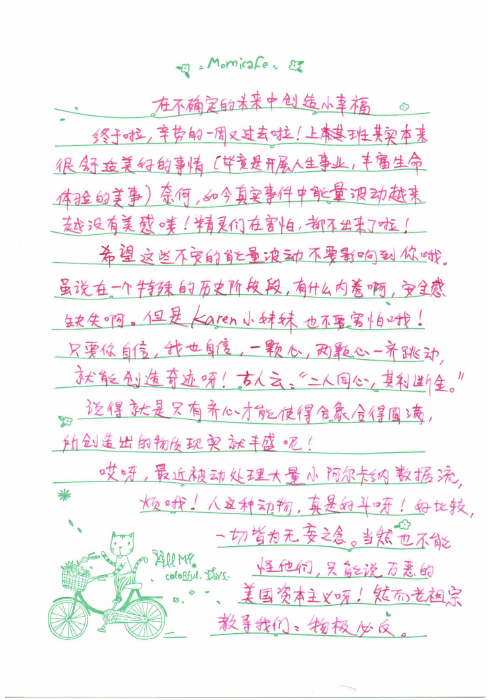 Momicafe
在不确定的未来中创造小幸福
终于啦，辛苦的一周又过去啦！上本其班其实本来
很舒拉美好的事情（毕竟是开展人生事业，丰富生命
体验的美事）奈何，如今真实事件中能量波动越来
越没有美感喽！精灵们在害怕，都不出来了啦！
希望这些不安的能量波动不要影响到你哦。
虽说在一个特殊的历史阶段段，有什么内卷啊，安全感
缺失啊。但是Karen小妹妹也不要害怕哦！
只要你自信，我也自信，一颗心，两颗心一齐跳动，
就能创造奇迹呀！古人云：“二人同心，其利断金。”
说得就是只有齐心才能使得合象合得圆满，
所创造出的物质现实就丰盛呢！
哎呀，最近被动处理大量小阿尔卡纳数据流，
烦哦！人这种动物，真是好斗呀！好比较，
一切皆为无妄之念。当然也不能
怪他们，只能说万恶的
美国资本主义呀！然而老祖宗
教导我们：物极必反。
All My
colorful Days.